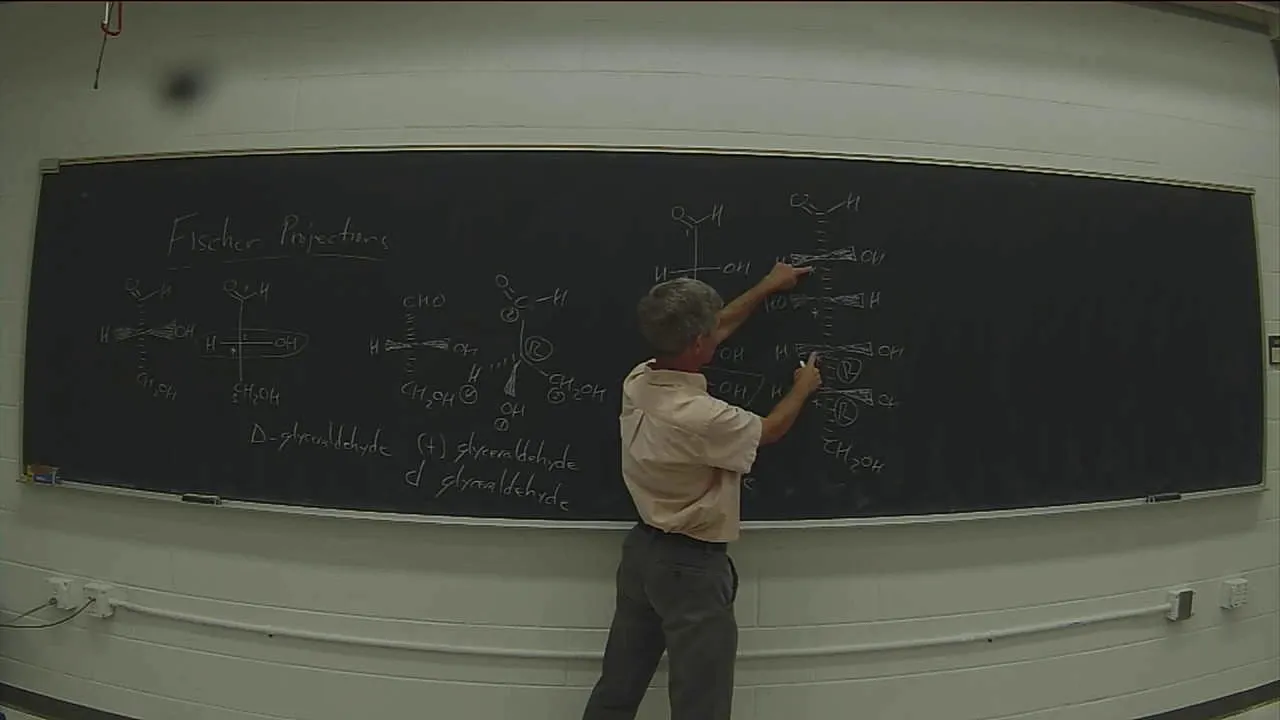 Fischer Projections
O H
H OH
CH₂OH
O 1 H
H 2 OH
*
3 CH₂OH
CHO
H OH
CH₂OH
O C H
R
H OH CH₂OH
D-glyceraldehyde (+) glyceraldehyde
d glyceraldehyde
O H
1
H OH
OH
OH
O H
H OH
HO H
*
H OH
R
H OH
* R
CH₂OH